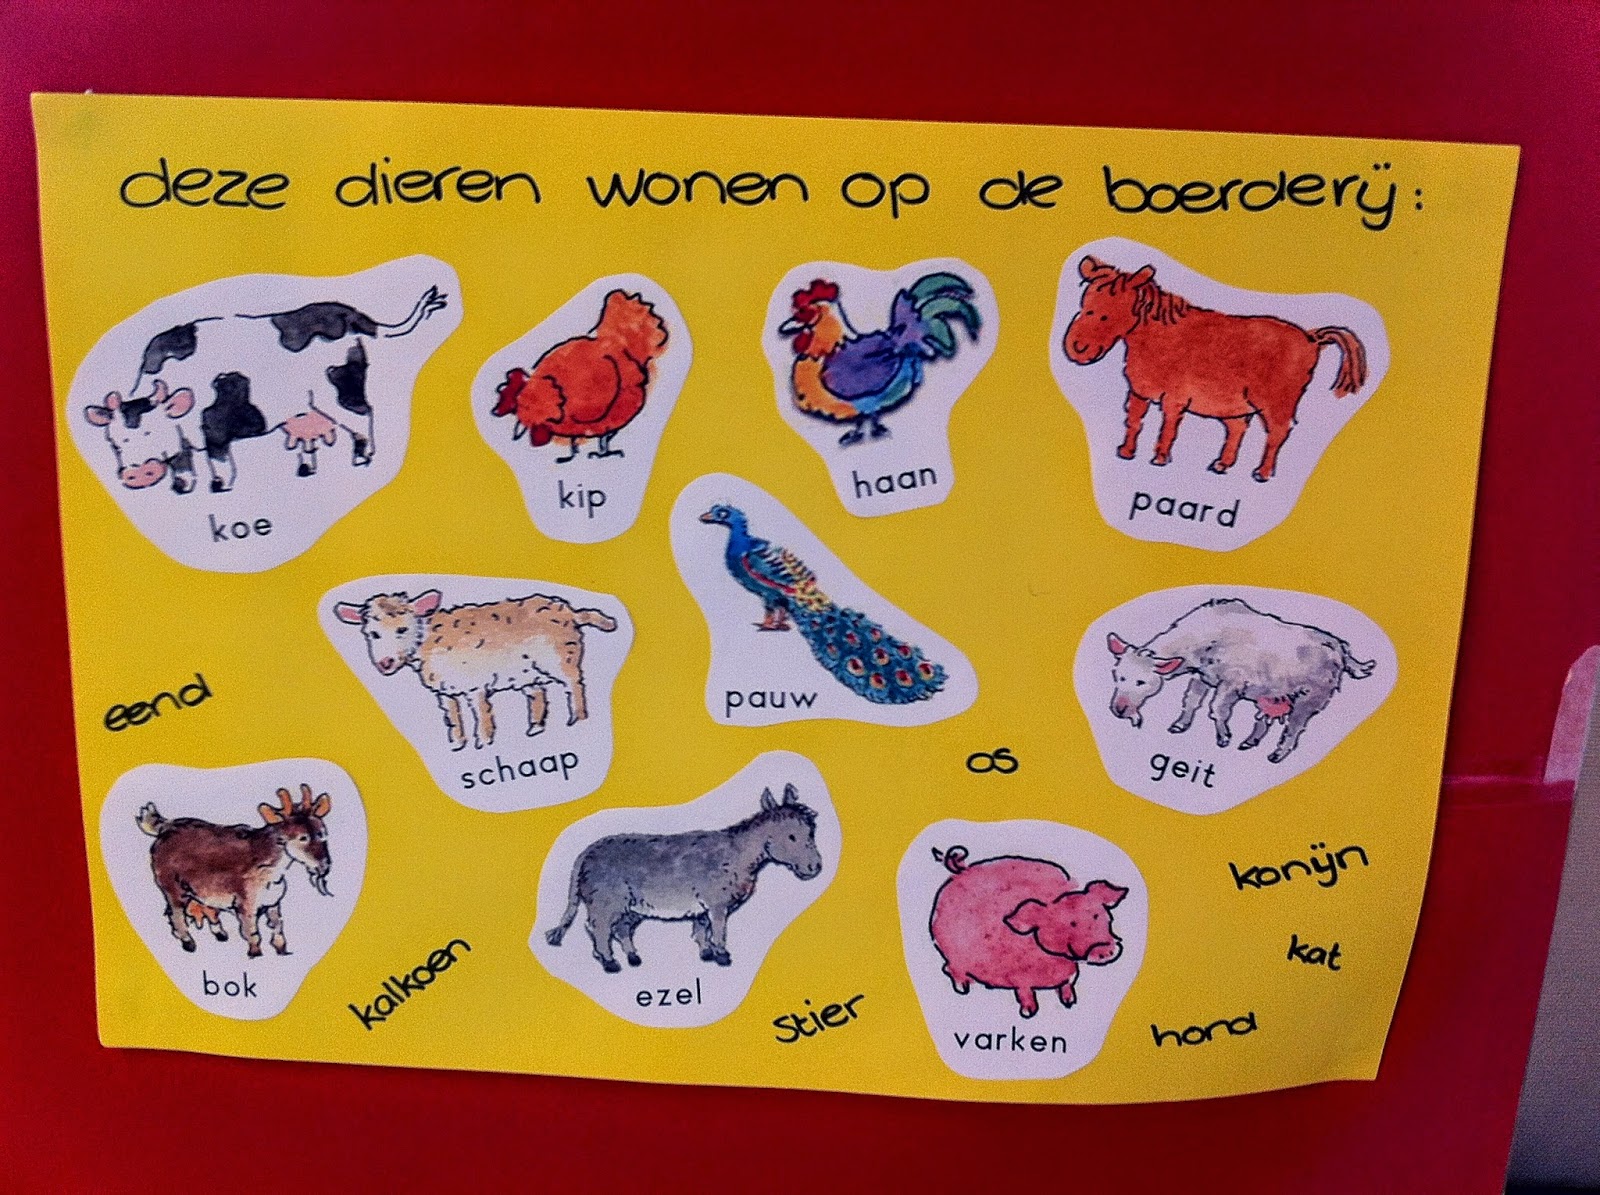 deze dieren wonen op de boerderij:
koe
kip
haan
paard
eend
schaap
pauw
os
geit
bok
kalkoen
ezel
stier
varken
konijn
kat
hond